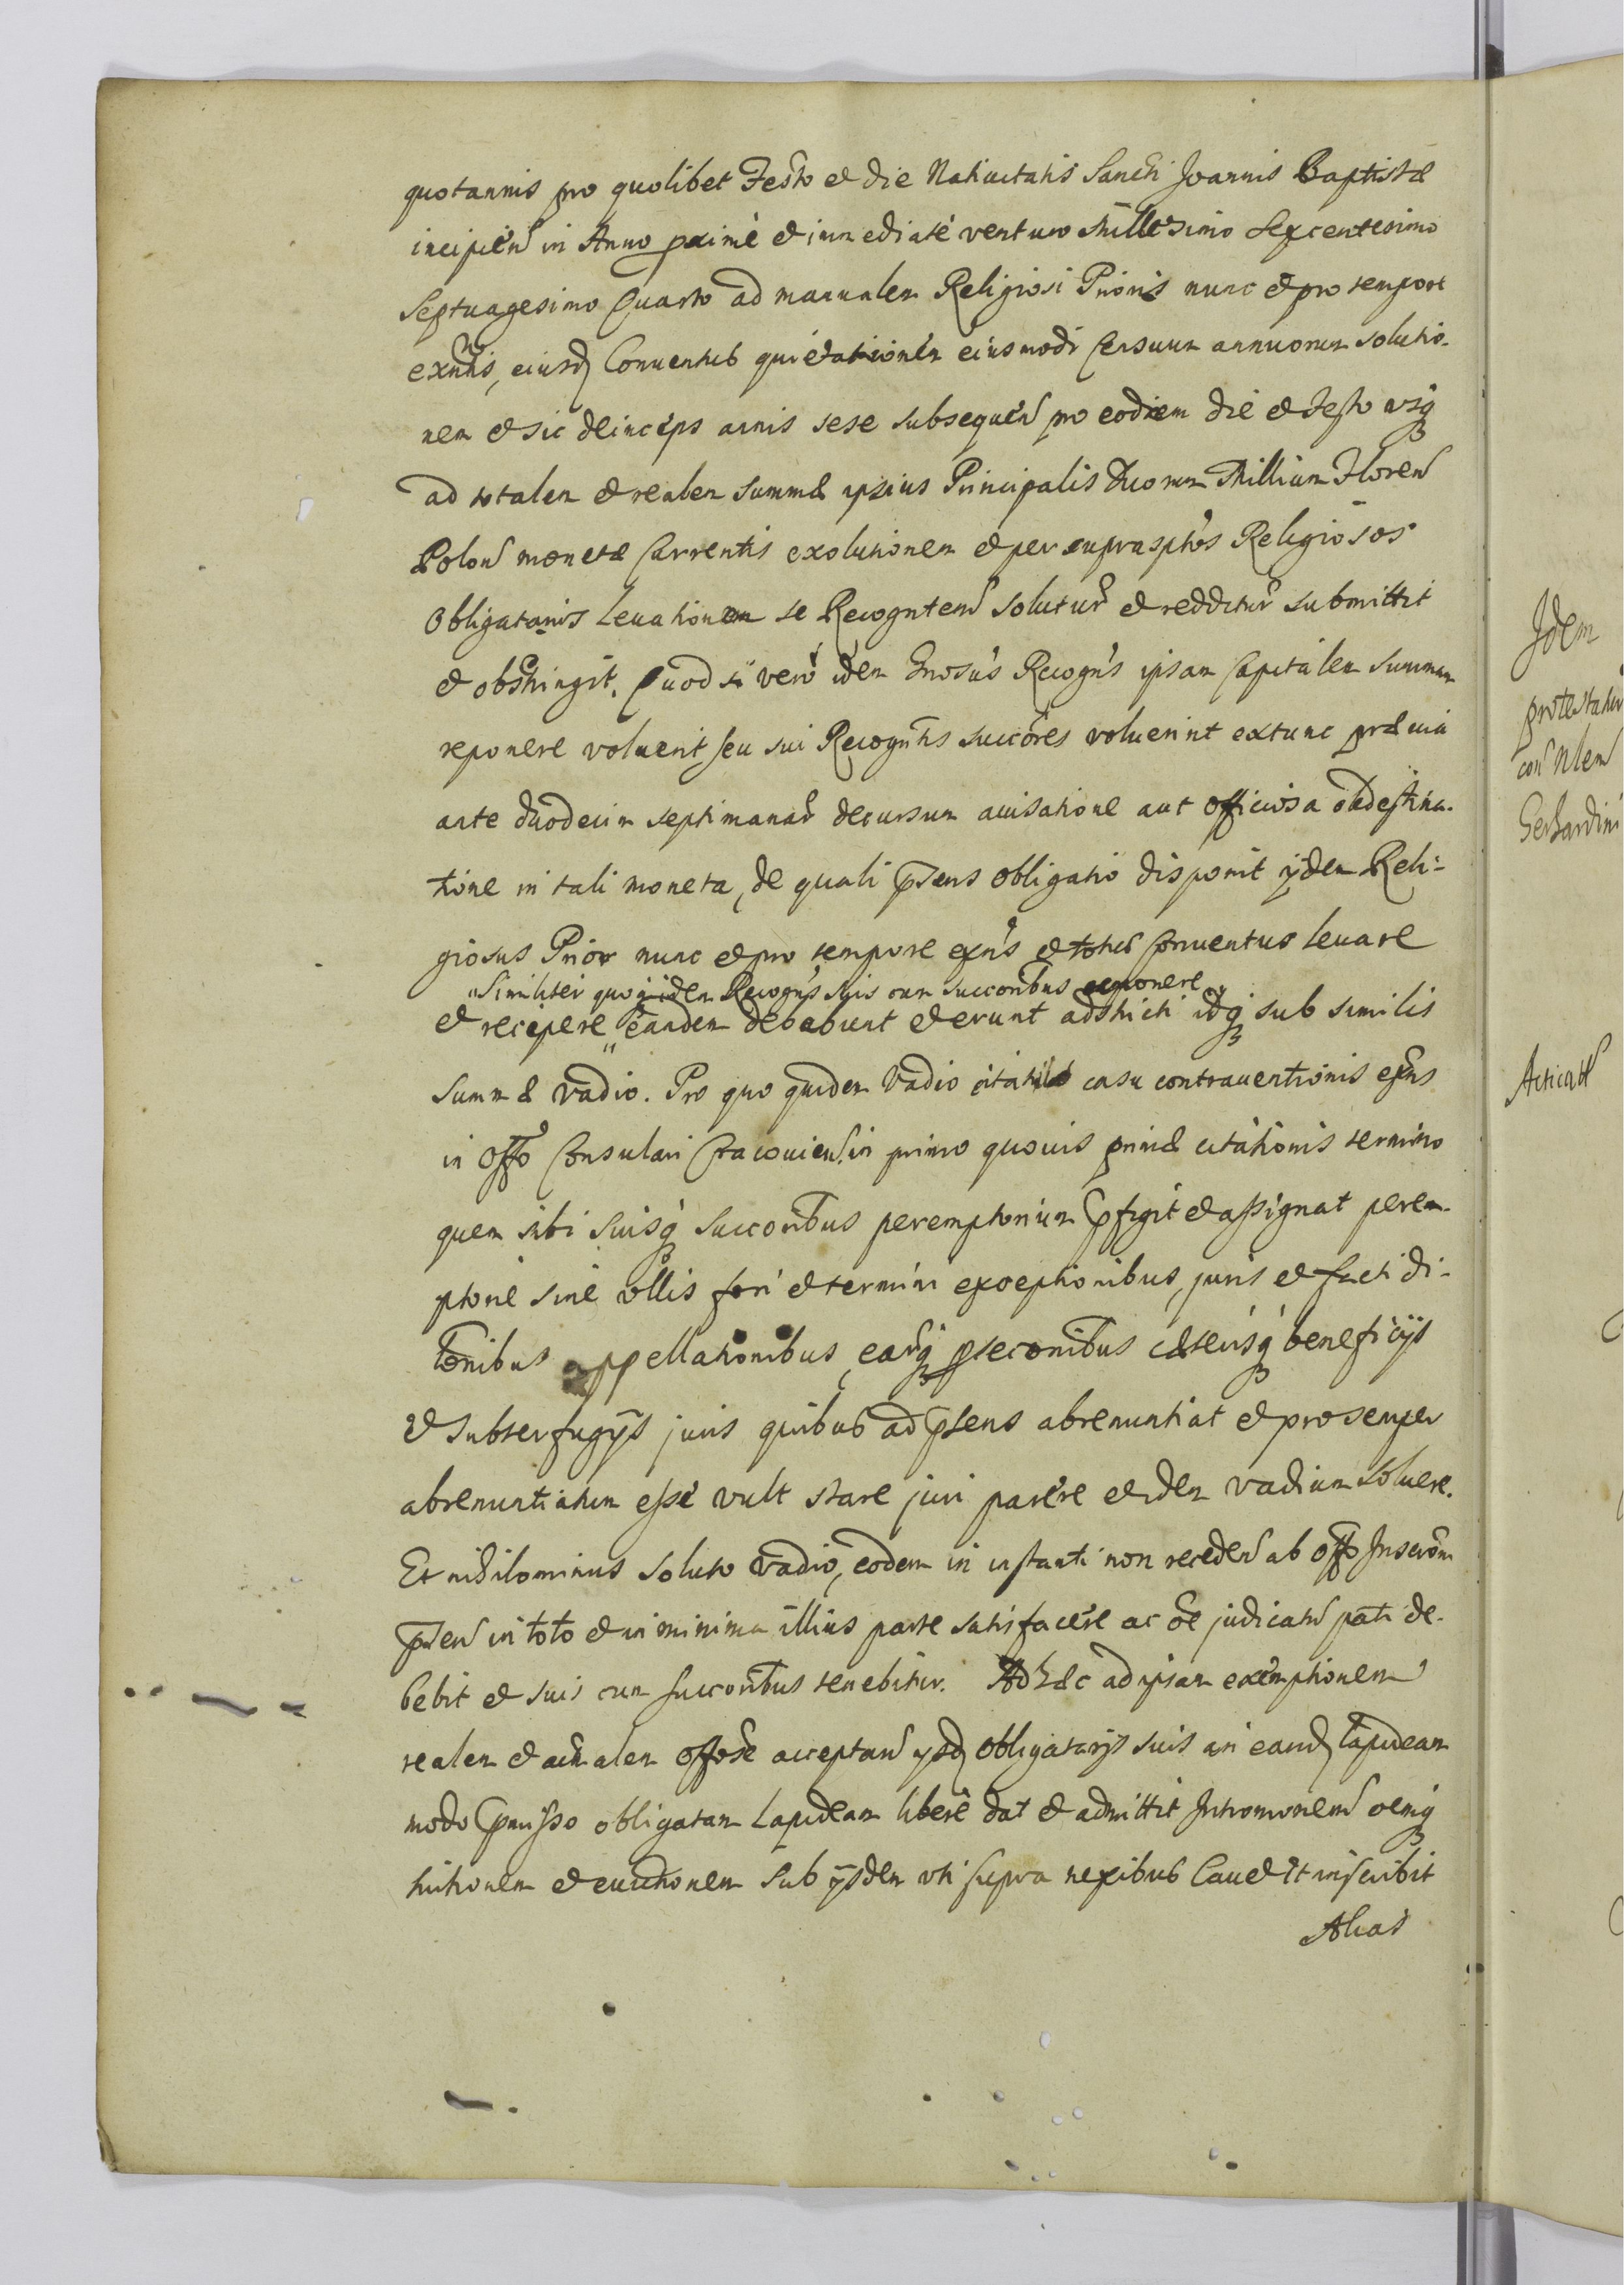 quotannis pro quolibet Festo et die Natiuitatis Sancti Joannis Baptistæ
incipien in Anno proximè et immediatè venturo Millesimo Sexcentesimo
Septuagesimo Quarto ad manualem Religiosi Prioris nunc et pro tempore
exntis, eiusd Conuentus quietationem eiusmodi Censuum annuorum solutio-
nem et sic deinceps annis sese subsequen pro eodem die et Festo vsq
ad totalem et realem summæ ipsius Principalis Duorum Millium Floren
Polon monetæ Currentis exolutionem et per suprasptos Religiosos
Obligatarios leuationem se Recogntem soluturum et redditur submittit
et obstringit. Quod si verò idem Gnosus Recogns ipsam Capitalem summam
reponere voluerit, seu sui Recogntis succores voluerint extunc præuia
ante duodecim septimanar decursum auisatione aut officiosa obdestina-
tione in tali moneta, de quali pnsens obligatio disponit ijdem Reli-
giosus Prior nunc et pro tempore exns et totus Conuentus leuare
"Similiter quoq idem Recogns suis cum succoribus reponere"
et recipere " eandem debebunt et erunt adstricti idq sub similis
summæ vadio. Pro quo quidem vadio citatus casu contrauentionis exns
in Offo Consulari Cracouien. in primo quouis primæ citationis termino
quem sibi suisq succoribus peremptorium pfigit et assignat perem-
ptorie sine vllis fori et termini exceptionibus, juris et facti di-
lonibus appellationibus, earq pseconibus cæterisq beneficijs
et subterfugijs juris quibus ad psens abrenuntiat et pro semper
abrenuntiatum esse vult stare juri parere et idem vadium soluere.
Et nihilominus soluto vadio, eodem in instanti non receden ab offo Inscroni
psen in toto et in minima illius parte satisfacere ac oe judicatu pati de-
bebit et suis cum succoribus tenebitur. Ad hæc ad ipsam exemptionem
realem et actualem offose acceptan ysd obligatarijs suis in eand lapideam
modo pmisso obligatam Lapideam liberè dat et admittit Intromonem oemq
tuitionem et euictionem sub ijsdem vti supra nexibus Cauet et inscribit
Alias
Idem
protestatur
con Nlem
Gerhardini
Acticat